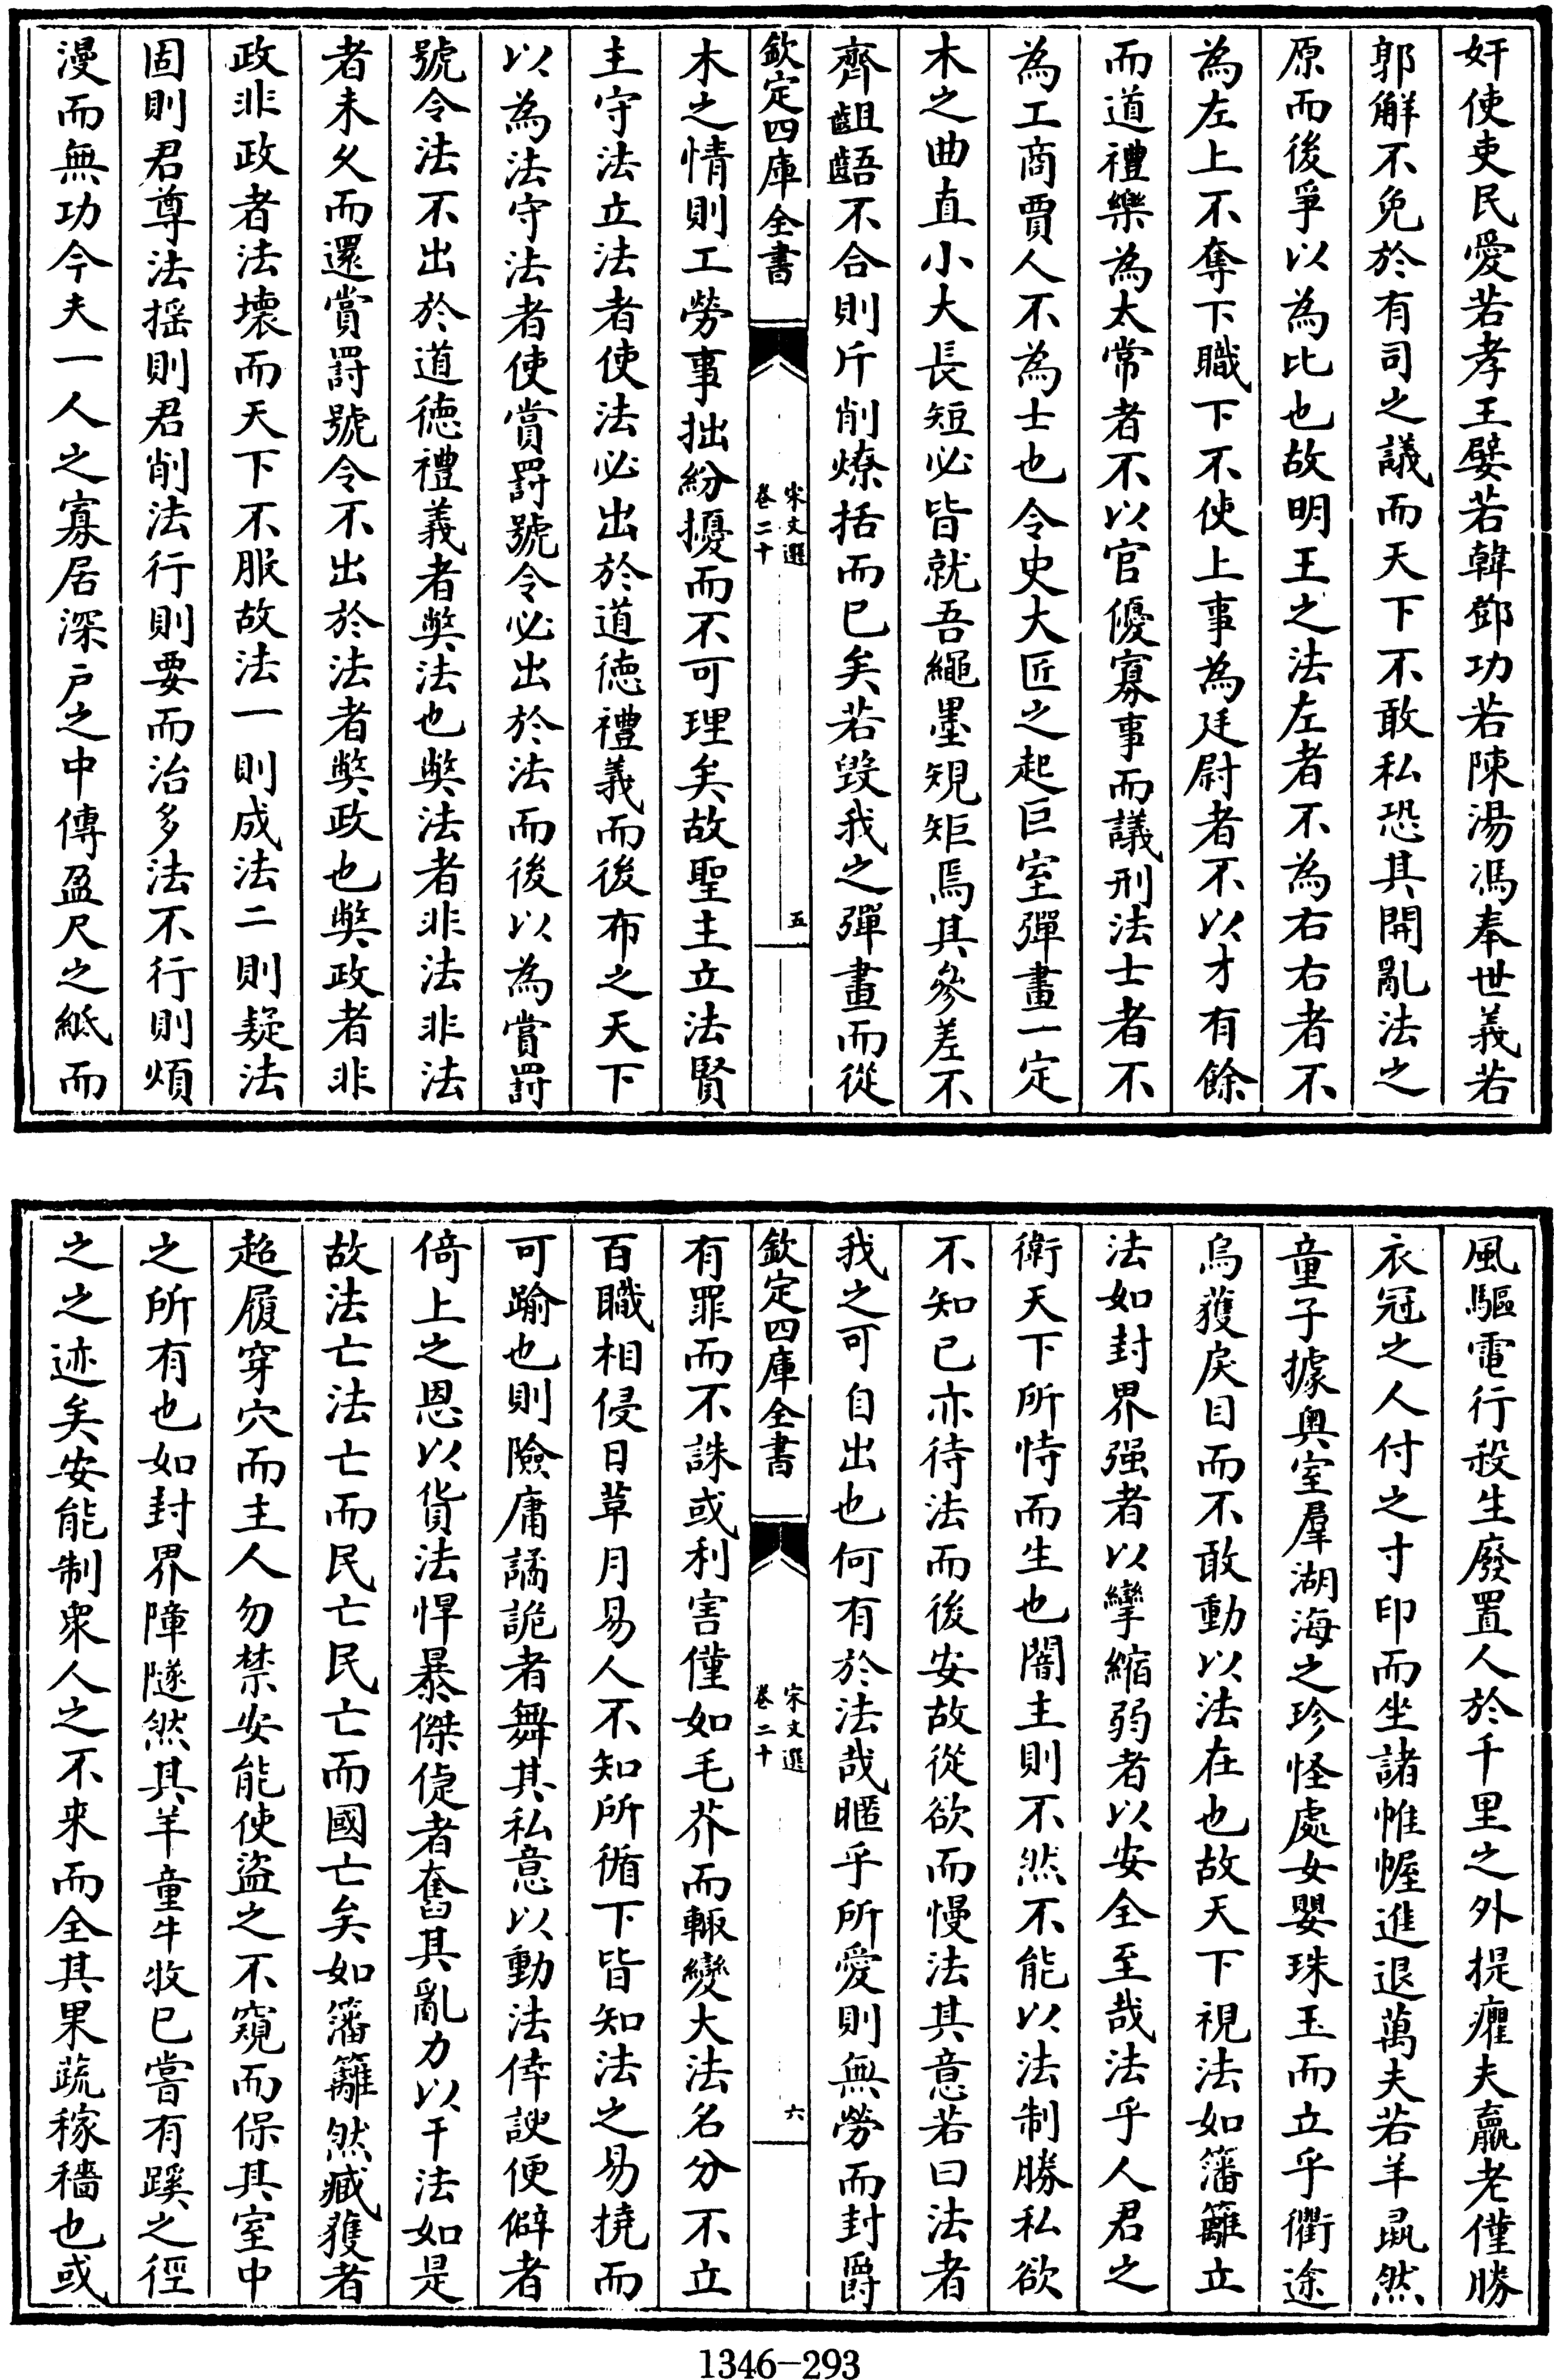 奸使吏民愛若孝王嬖若韓鄧功若陳湯馮奉世義若
郭解不免於有司之議而天下不敢私恐其開亂法之
原而後爭以為比也故明王之法左者不為右右者不
為左上不奪下職下不使上事為廷尉者不以才有餘
而道禮樂為太常者不以官優寡事而議刑法士者不
為工商賈人不為士也令史大匠之起巨室彈畫一定
木之曲直小大長短必皆就吾繩墨規矩焉其參差不
齊齟齬不合則斤削燎括而已矣若毀我之彈畫而從
欽定四庫全書
宋文選
卷二十
五
木之情則工勞事拙紛擾而不可理矣故聖主立法賢
主守法立法者使法必出於道德禮義而後布之天下
以為法守法者使賞罰號令必出於法而後以為賞罰
號令法不出於道德禮義者弊法也弊法者非法非法
者未久而還賞罰號令不出於法者弊政也弊政者非
政非政者法壞而天下不服故法一則成法二則疑法
固則君尊法揺則君削法行則要而治多法不行則煩
漫而無功今夫一人之寡居深戶之中傳盈尺之紙而
風驅電行殺生廢置人於千里之外提癯夫羸老僅勝
衣冠之人付之寸印而坐諸帷幄進退萬夫若羊鼠然
童子據奧室羣湖海之珍怪處女嬰珠玉而立乎衢途
烏獲戾目而不敢動以法在也故天下視法如籓籬立
法如封界强者以攣縮弱者以安全至哉法乎人君之
衛天下所恃而生也闇主則不然不能以法制勝私欲
不知已亦待法而後安故從欲而慢法其意若曰法者
我之可自出也何有於法哉暱乎所愛則無勞而封爵
欽定四庫全書
宋文選
卷二十
六
有罪而不誅或利害僅如毛芥而輙變大法名分不立
百職相侵日草月易人不知所循下皆知法之易撓而
可踰也則險庸譎詭者舞其私意以動法倖諛便僻者
倚上之恩以貨法悍暴傑偍者奮其亂力以干法如是
故法亡法亡而民亡民亡而國亡矣如籓籬然臧獲者
超履穿穴而主人勿禁安能使盜之不窺而保其室中
之所有也如封界障隧然其羊童牛牧已嘗有蹊之徑
之之迹矣安能制衆人之不来而全其果蔬稼穡也或
1346-293